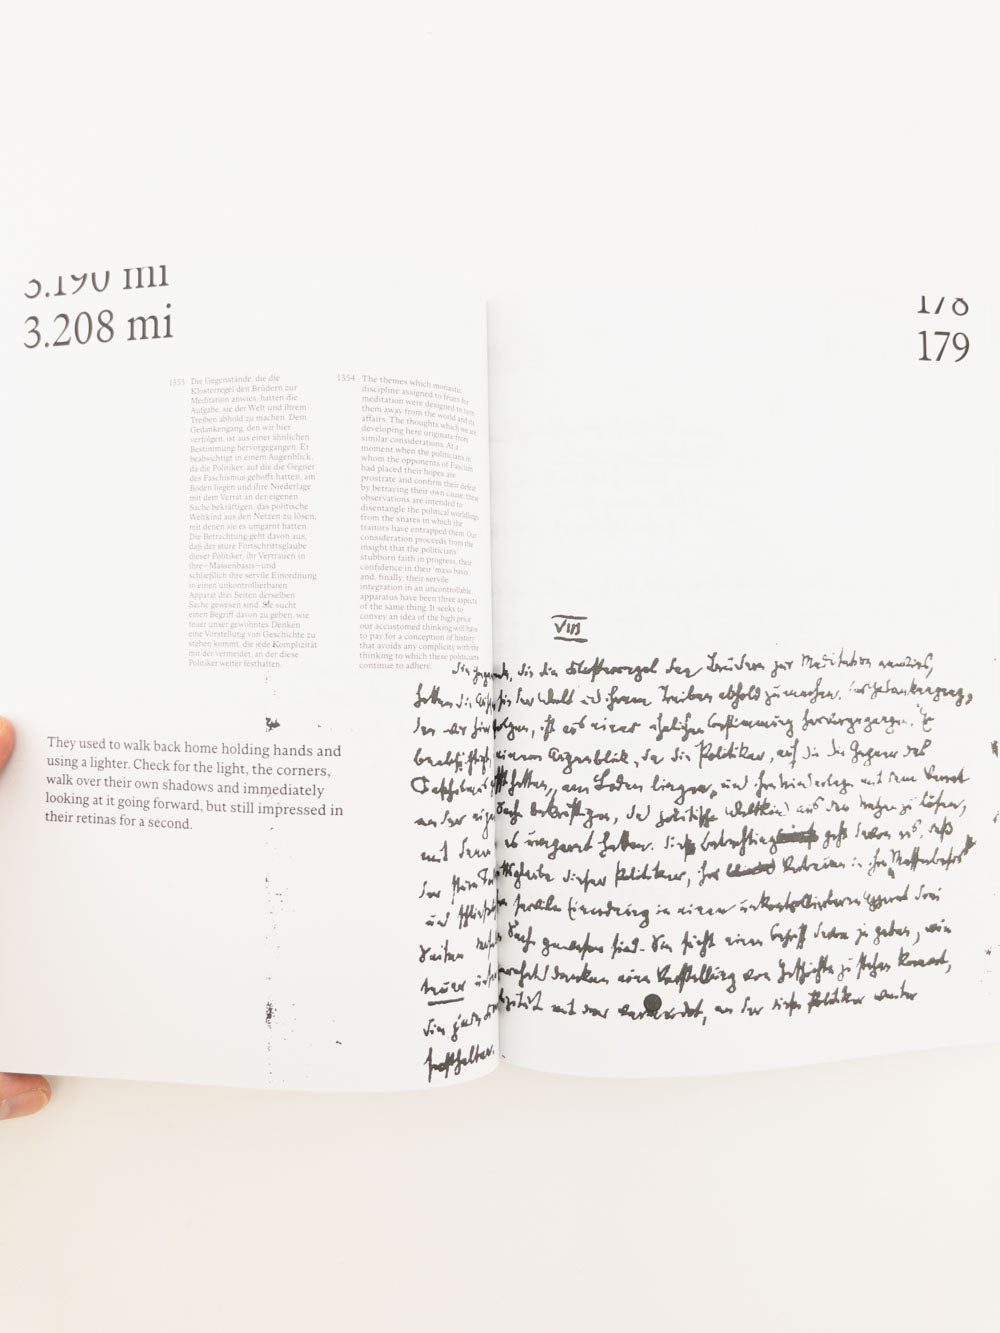 3.190 mi
3.208 mi
178
179
1353 Die Gegenstände, die die
Klosterregel den Brüdern zur
Meditation anwies, hatten die
Aufgabe, sie der Welt und ihrem
Treiben abhold zu machen. Dem
Gedankengang, den wir hier
verfolgen, ist aus einer ähnlichen
Bestimmung hervorgegangen. Er
beabsichtigt in einem Augenblick,
da die Politiker, auf die die Gegner
des Faschismus gehofft hatten, am
Boden liegen und ihre Niederlage
mit dem Verrat an der eigenen
Sache bekräftigen, das politische
Weltkind aus den Netzen zu lösen,
mit denen sie es umgarnt hatten.
Die Betrachtung geht davon aus,
daß der sture Fortschrittsglaube
dieser Politiker, ihr Vertrauen in
ihre—Massenbasis—und
schließlich ihre servile Einordnung
in einen unkontrollierbaren
Apparat drei Seiten derselben
Sache gewesen sind. Sie sucht
einen Begriff davon zu geben, wie
teuer unser gewohntes Denken
eine Vorstellung von Geschichte zu
stehen kommt, die jede Komplizität
mit der vermeidet, an der diese
Politiker weiter festhalten.
1354 The themes which monastic
discipline assigned to friars for
meditation were designed to turn
them away from the world and its
affairs. The thoughts which we are
developing here originate from
similar considerations. At a
moment when the politicians in
whom the opponents of Fascism
had placed their hopes are
prostrate and confirm their defeat
by betraying their own cause, these
observations are intended to
disentangle the political worldlings
from the snares in which the
traitors have entrapped them. Our
consideration proceeds from the
insight that the politicians'
stubborn faith in progress, their
confidence in their 'mass basis',
and, finally, their servile
integration in an uncontrollable
apparatus have been three aspects
of the same thing. It seeks to
convey an idea of the high price
our accustomed thinking will have
to pay for a conception of history
that avoids any complicity with the
thinking to which these politicians
continue to adhere.
They used to walk back home holding hands and
using a lighter. Check for the light, the corners,
walk over their own shadows and immediately
looking at it going forward, but still impressed in
their retinas for a second.
VIII
die die Klosterregel den Brüdern zur Meditation anwies,
hatten die der Welt und ihrem Treiben abhold zu machen. Der Gedankengang,
den wir hier verfolgen, ist aus einer ähnlichen Bestimmung hervorgegangen. Er
beabsichtigt einem Augenblick, da die Politiker, auf die die Gegner des
Faschismus gehofft hatten, am Boden liegen und ihre Niederlage mit dem Verrat
an der eigenen Sache bekräftigen, das politische Weltkind aus den Netzen zu lösen,
mit denen sie es umgarnt hatten. Die Betrachtung geht davon aus, daß
der sture dieser Politiker, ihr Vertrauen in ihre Massenbasis
und schließlich servile Einordnung in einen unkontrollierbaren Apparat drei
Seiten Sache gewesen sind. Sie sucht einen Begriff davon zu geben, wie
teuer unser Denken eine Vorstellung von Geschichte zu stehen kommt,
die jede mit der vermeidet, an der diese Politiker weiter
festhalten.